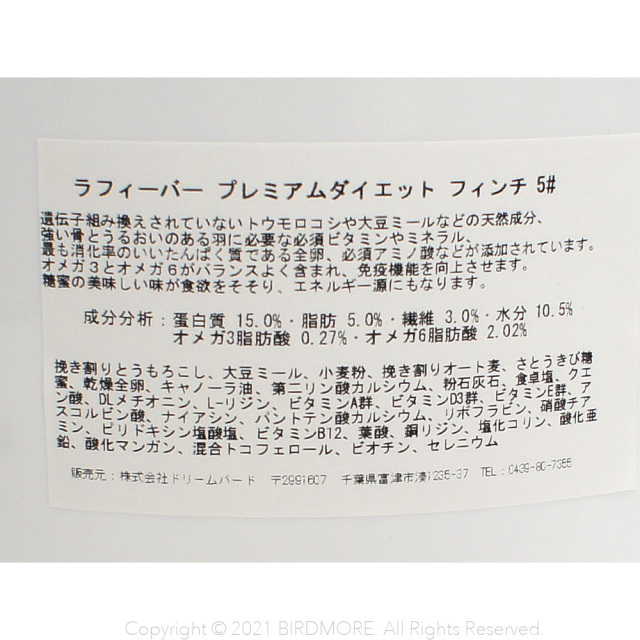 ラフィーバー プレミアムダイエット フィンチ 5#
遺伝子組み換えされていないトウモロコシや大豆ミールなどの天然成分、
強い骨とうるおいのある羽に必要な必須ビタミンやミネラル、
最も消化率のいいたんぱく質である全卵、必須アミノ酸などが添加されています。
オメガ3とオメガ6がバランスよく含まれ、免疫機能を向上させます。
糖蜜の美味しい味が食欲をそそり、エネルギー源にもなります。
成分分析:蛋白質 15.0%・脂肪 5.0%・繊維 3.0%・水分 10.5%
オメガ3脂肪酸 0.27%・オメガ6脂肪酸 2.02%
挽き割りとうもろこし、大豆ミール、小麦粉、挽き割りオート麦、さとうきび糖
蜜、乾燥全卵、キャノーラ油、第二リン酸カルシウム、粉石灰石、食卓塩、クエ
ン酸、DLメチオニン、L-リジン、ビタミンA群、ビタミンD3群、ビタミンE群、ア
スコルビン酸、ナイアシン、パントテン酸カルシウム、リボフラビン、硝酸チア
ミン、ピリドキシン塩酸塩、ビタミンB12、葉酸、銅リジン、塩化コリン、酸化亜
鉛、酸化マンガン、混合トコフェロール、ビオチン、セレニウム
販売元:株式会社ドリームバード 〒2991607 千葉県富津市湊1235-37 TEL:0439-80-7355
Copyright © 2021 BIRDMORE. All Rights Reserved